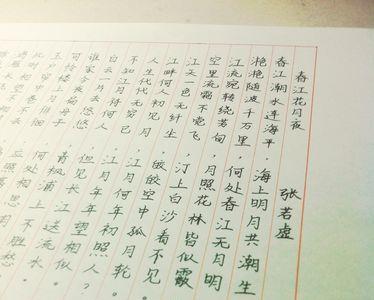 春江花月夜
张若虚
春江潮水连海平，海上明月共潮生
滟滟随波千万里，何处春江无月明
江流宛转绕芳甸，月照花林皆似霰
空里流霜不觉飞，汀上白沙看不见
江天一色无纤尘，皎皎空中孤月轮。
江畔何人初见月，江月何年初照人？
人生代代无穷已，江月年年望相似
不知江月待何人，但见长江送流水。
白云一片去悠悠，青枫浦上不胜愁
谁家今夜扁舟子，何处相思
可怜楼上月徘徊，应照